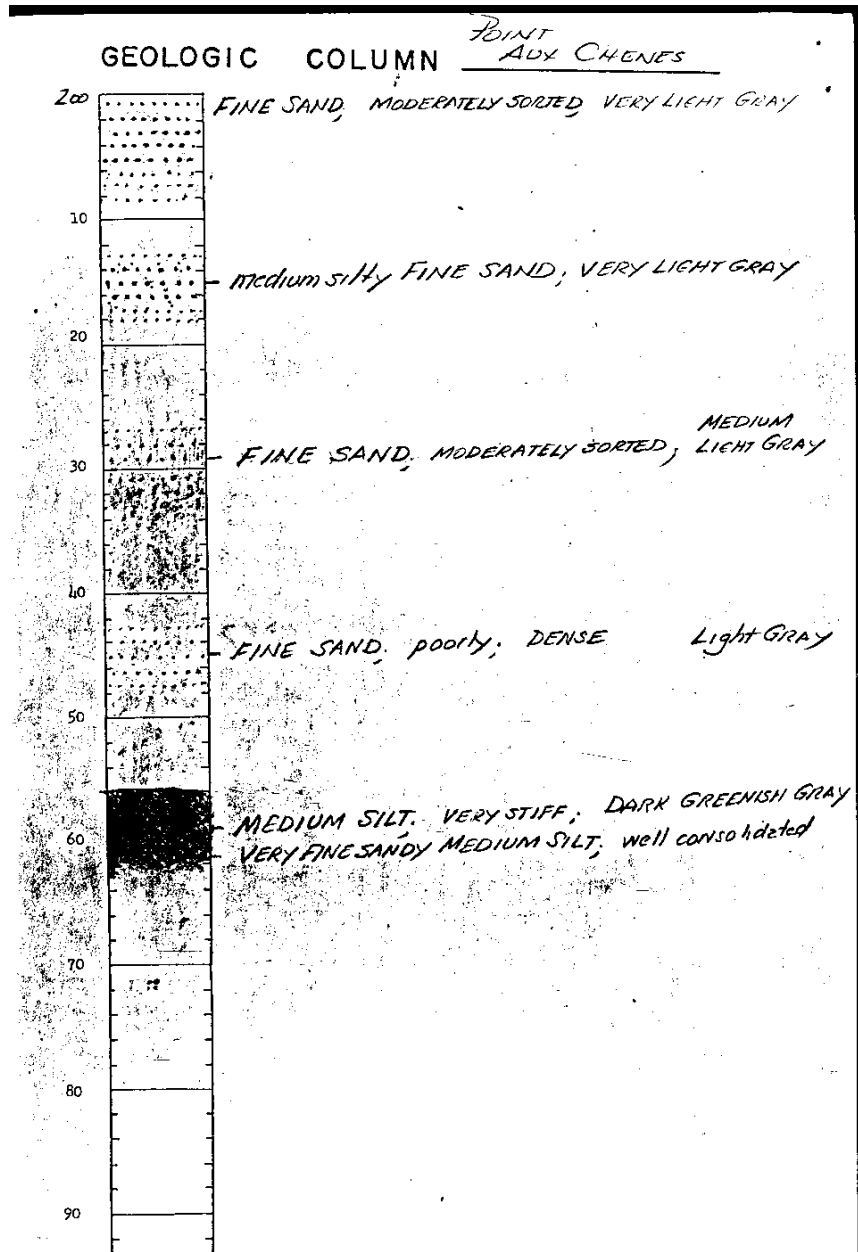 POINT
GEOLOGIC COLUMN AUX CHENES
200 FINE SAND, MODERATELY SORTED, VERY LIGHT GRAY
10
medium silty FINE SAND; VERY LIGHT GRAY
20
MEDIUM
FINE SAND, MODERATELY SORTED; LIGHT GRAY
30
40
FINE SAND, poorly; DENSE Light GRAY
50
MEDIUM SILT, VERY STIFF; DARK GREENISH GRAY
60
VERY FINE SANDY MEDIUM SILT; well consolidated
70
80
90